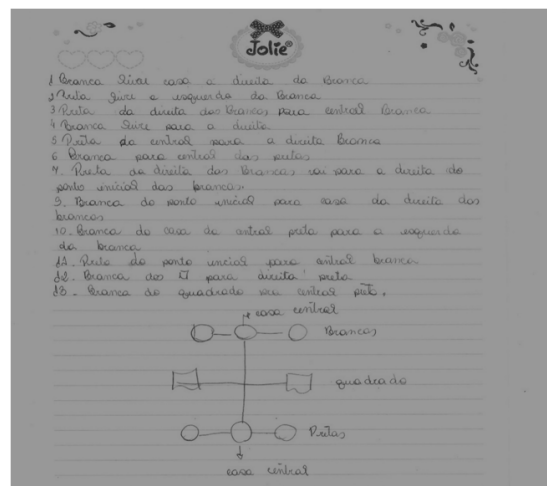 Jolie®
1 Branca livre casa a direita da Branca
2 Preta livre a esquerda da Branca
3 Preta da direita das Brancas para central Branca
4 Branca livre para a direita
5 Preta da central para a direita Branca
6 Branca para central das pretas
7. Preta da direita das Brancas vai para a direita do
ponto inicial das brancas
9. Branca do ponto inicial para casa da direita das
brancas
10. Branca do casa da central preta para a esquerda
da branca
11. Preta do ponto inicial para central branca
12. Branca dos para direita preta
13. Branca do quadrado central
casa central
Brancas
quadrado
Pretas
casa central